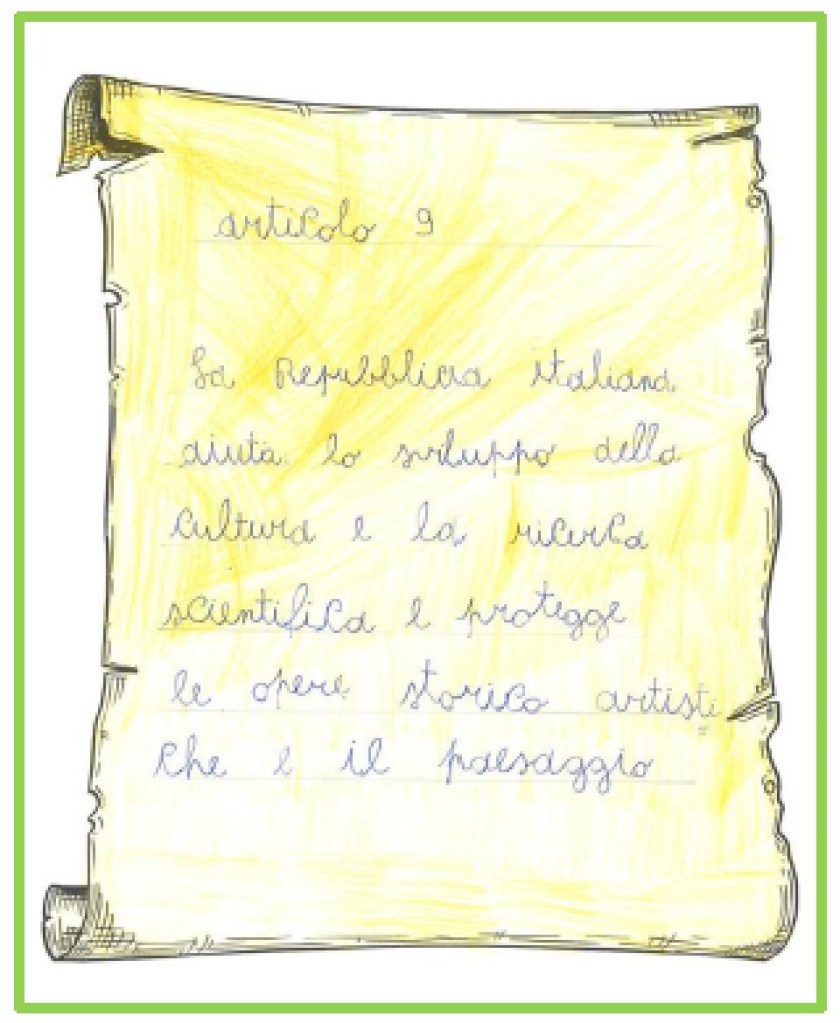 articolo 9
La Repubblica italiana
aiuta lo sviluppo della
cultura e la ricerca
scientifica e protegge
le opere storico artisti
che e il paesaggio